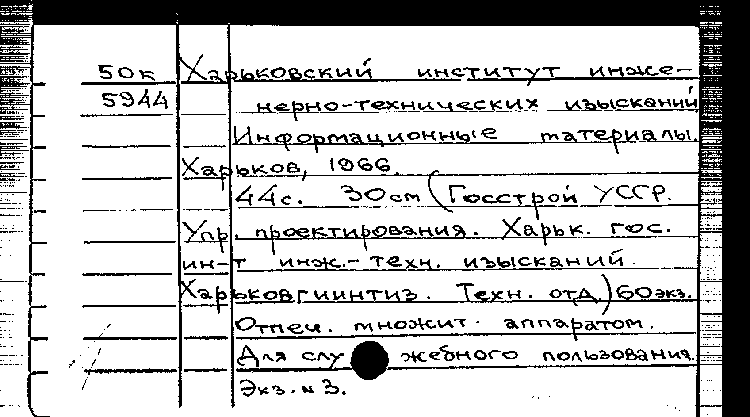 50к Харьковский институт инже-
5944 нерно-технических изысканий
Информационные материалы.
Харьков, 1966.
44с. 30см (Госстрой УССР.
Упр. проектирования. Харьк. гос.
ин-т инж.-техн. изысканий
Харьковгиинтиз. Техн. отд.) 60экз.
Отпеч. множит. аппаратом.
Для служебного пользования.
Экз. №3.